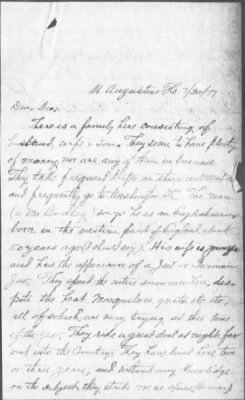 St. Augustine Fla 7/30/17
Dear Sir:
There is a family here consisting of
husband, wife & son. They seem to have plenty
of money, nor are any of them in business
They take frequent trips in their automobile
and frequently go to Washington DC. The man
(a Mr. ) says he is an Englishman
born in the western part of England about
50 years ago (I should say). His wife is
and has the appearance of a Jew or German
Jew. They spend the entire summer here, des-
pite the heat. Mosquitoes, gnats etc etc,
all of which are very trying at this time
of the year. They ride a great deal at night far
out into the Country; they have lived here two
or three years, and without any knowledge
on the subject, they strike me as spies